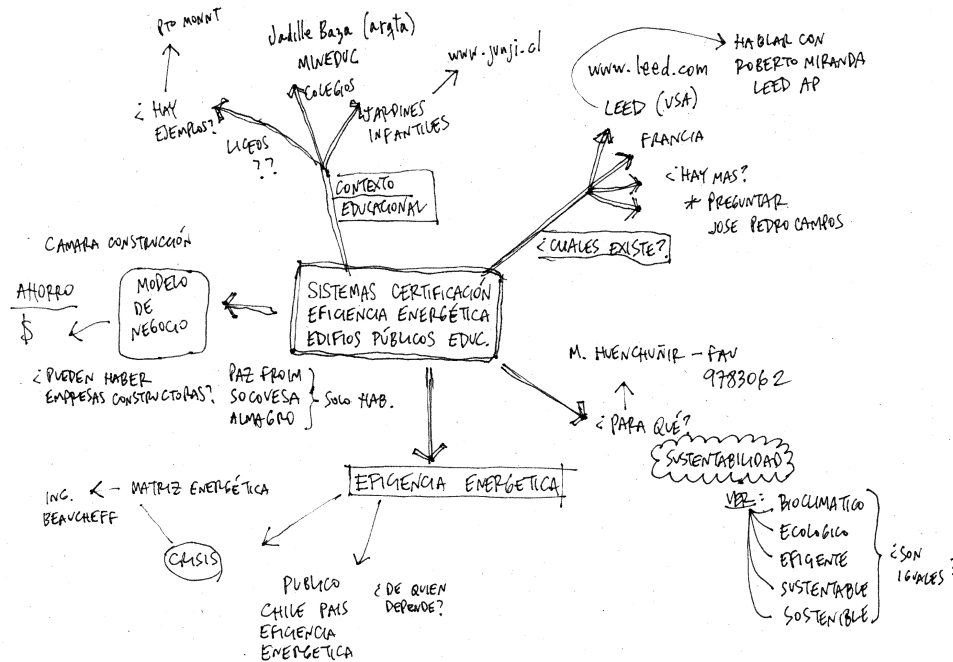 PTO MONNT
¿HAY
EJEMPLOS?
LICEOS
??
Jadille Baza (arqta)
MINEDUC
COLEGIOS
JARDINES
INFANTILES
www.junji.cl
CONTEXTO
EDUCACIONAL
www.leed.com
LEED (USA)
HABLAR CON
ROBERTO MIRANDA
LEED AP
FRANCIA
¿HAY MAS?
* PREGUNTAR
JOSE PEDRO CAMPOS
¿CUALES EXISTE?
CAMARA CONSTRUCCIÓN
AHORRO
$
MODELO
DE
NEGOCIO
SISTEMAS CERTIFICACIÓN
EFICIENCIA ENERGÉTICA
EDIFIOS PÚBLICOS EDUC.
¿PUEDEN HABER
EMPRESAS CONSTRUCTORAS?
PAZ FROIM
SOCOVESA
ALMAGRO
SOLO HAB.
M. HUENCHUÑIR - FAU
9783062
¿PARA QUÉ?
SUSTENTABILIDAD
VER:
BIOCLIMATICO
ECOLOGICO
EFIGENTE
SUSTENTABLE
SOSTENIBLE
¿SON
IGUALES?
EFIGENCIA ENERGETICA
ING.
BEAUCHEFF
MATRIZ ENERGÉTICA
CRISIS
PUBLICO
CHILE PAIS
EFIGENCIA
ENERGETICA
¿DE QUIEN
DEPENDE?